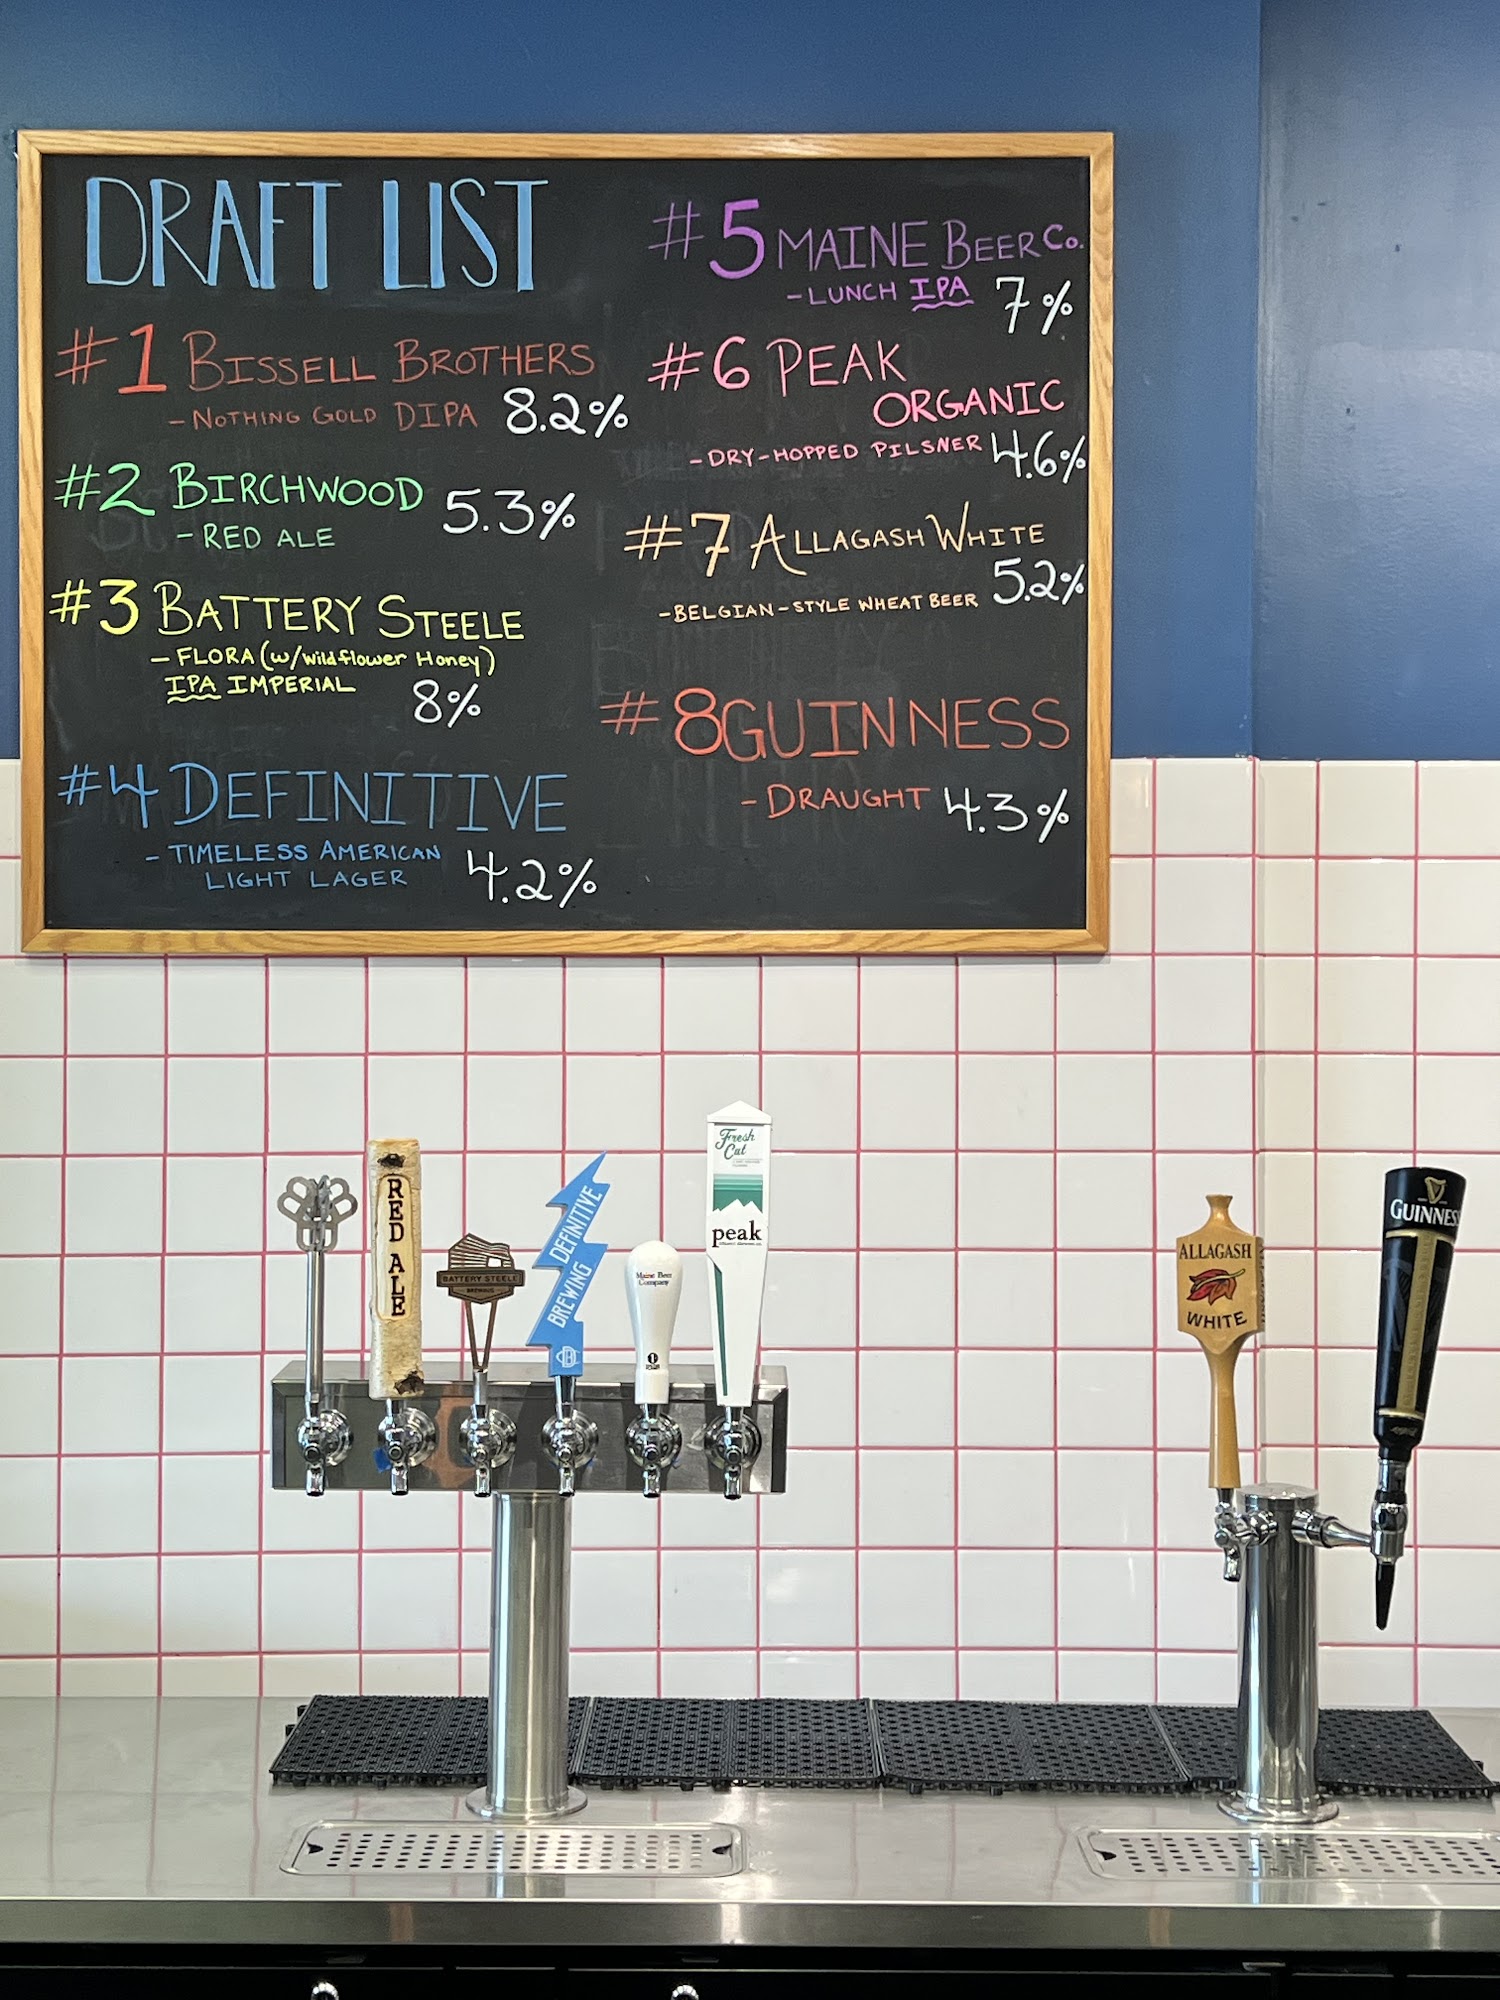 DRAFT LIST
#1 BISSELL BROTHERS
- NOTHING GOLD DIPA 8.2%
#2 BIRCHWOOD 5.3%
- RED ALE
#3 BATTERY STEELE
- FLORA (w/wildflower Honey)
IPA IMPERIAL 8%
#4 DEFINITIVE
- TIMELESS AMERICAN
LIGHT LAGER 4.2%
#5 MAINE BEER Co.
- LUNCH IPA 7%
#6 PEAK
ORGANIC
- DRY-HOPPED PILSNER 4.6%
#7 ALLAGASH WHITE
- BELGIAN-STYLE WHEAT BEER 5.2%
#8 GUINNESS
- DRAUGHT 4.3%
RED ALE
BATTERY STEELE
BREWING
DEFINITIVE
BREWING
Maine Beer
Company
Fresh
Cut
peak
ALLAGASH
WHITE
GUINNESS